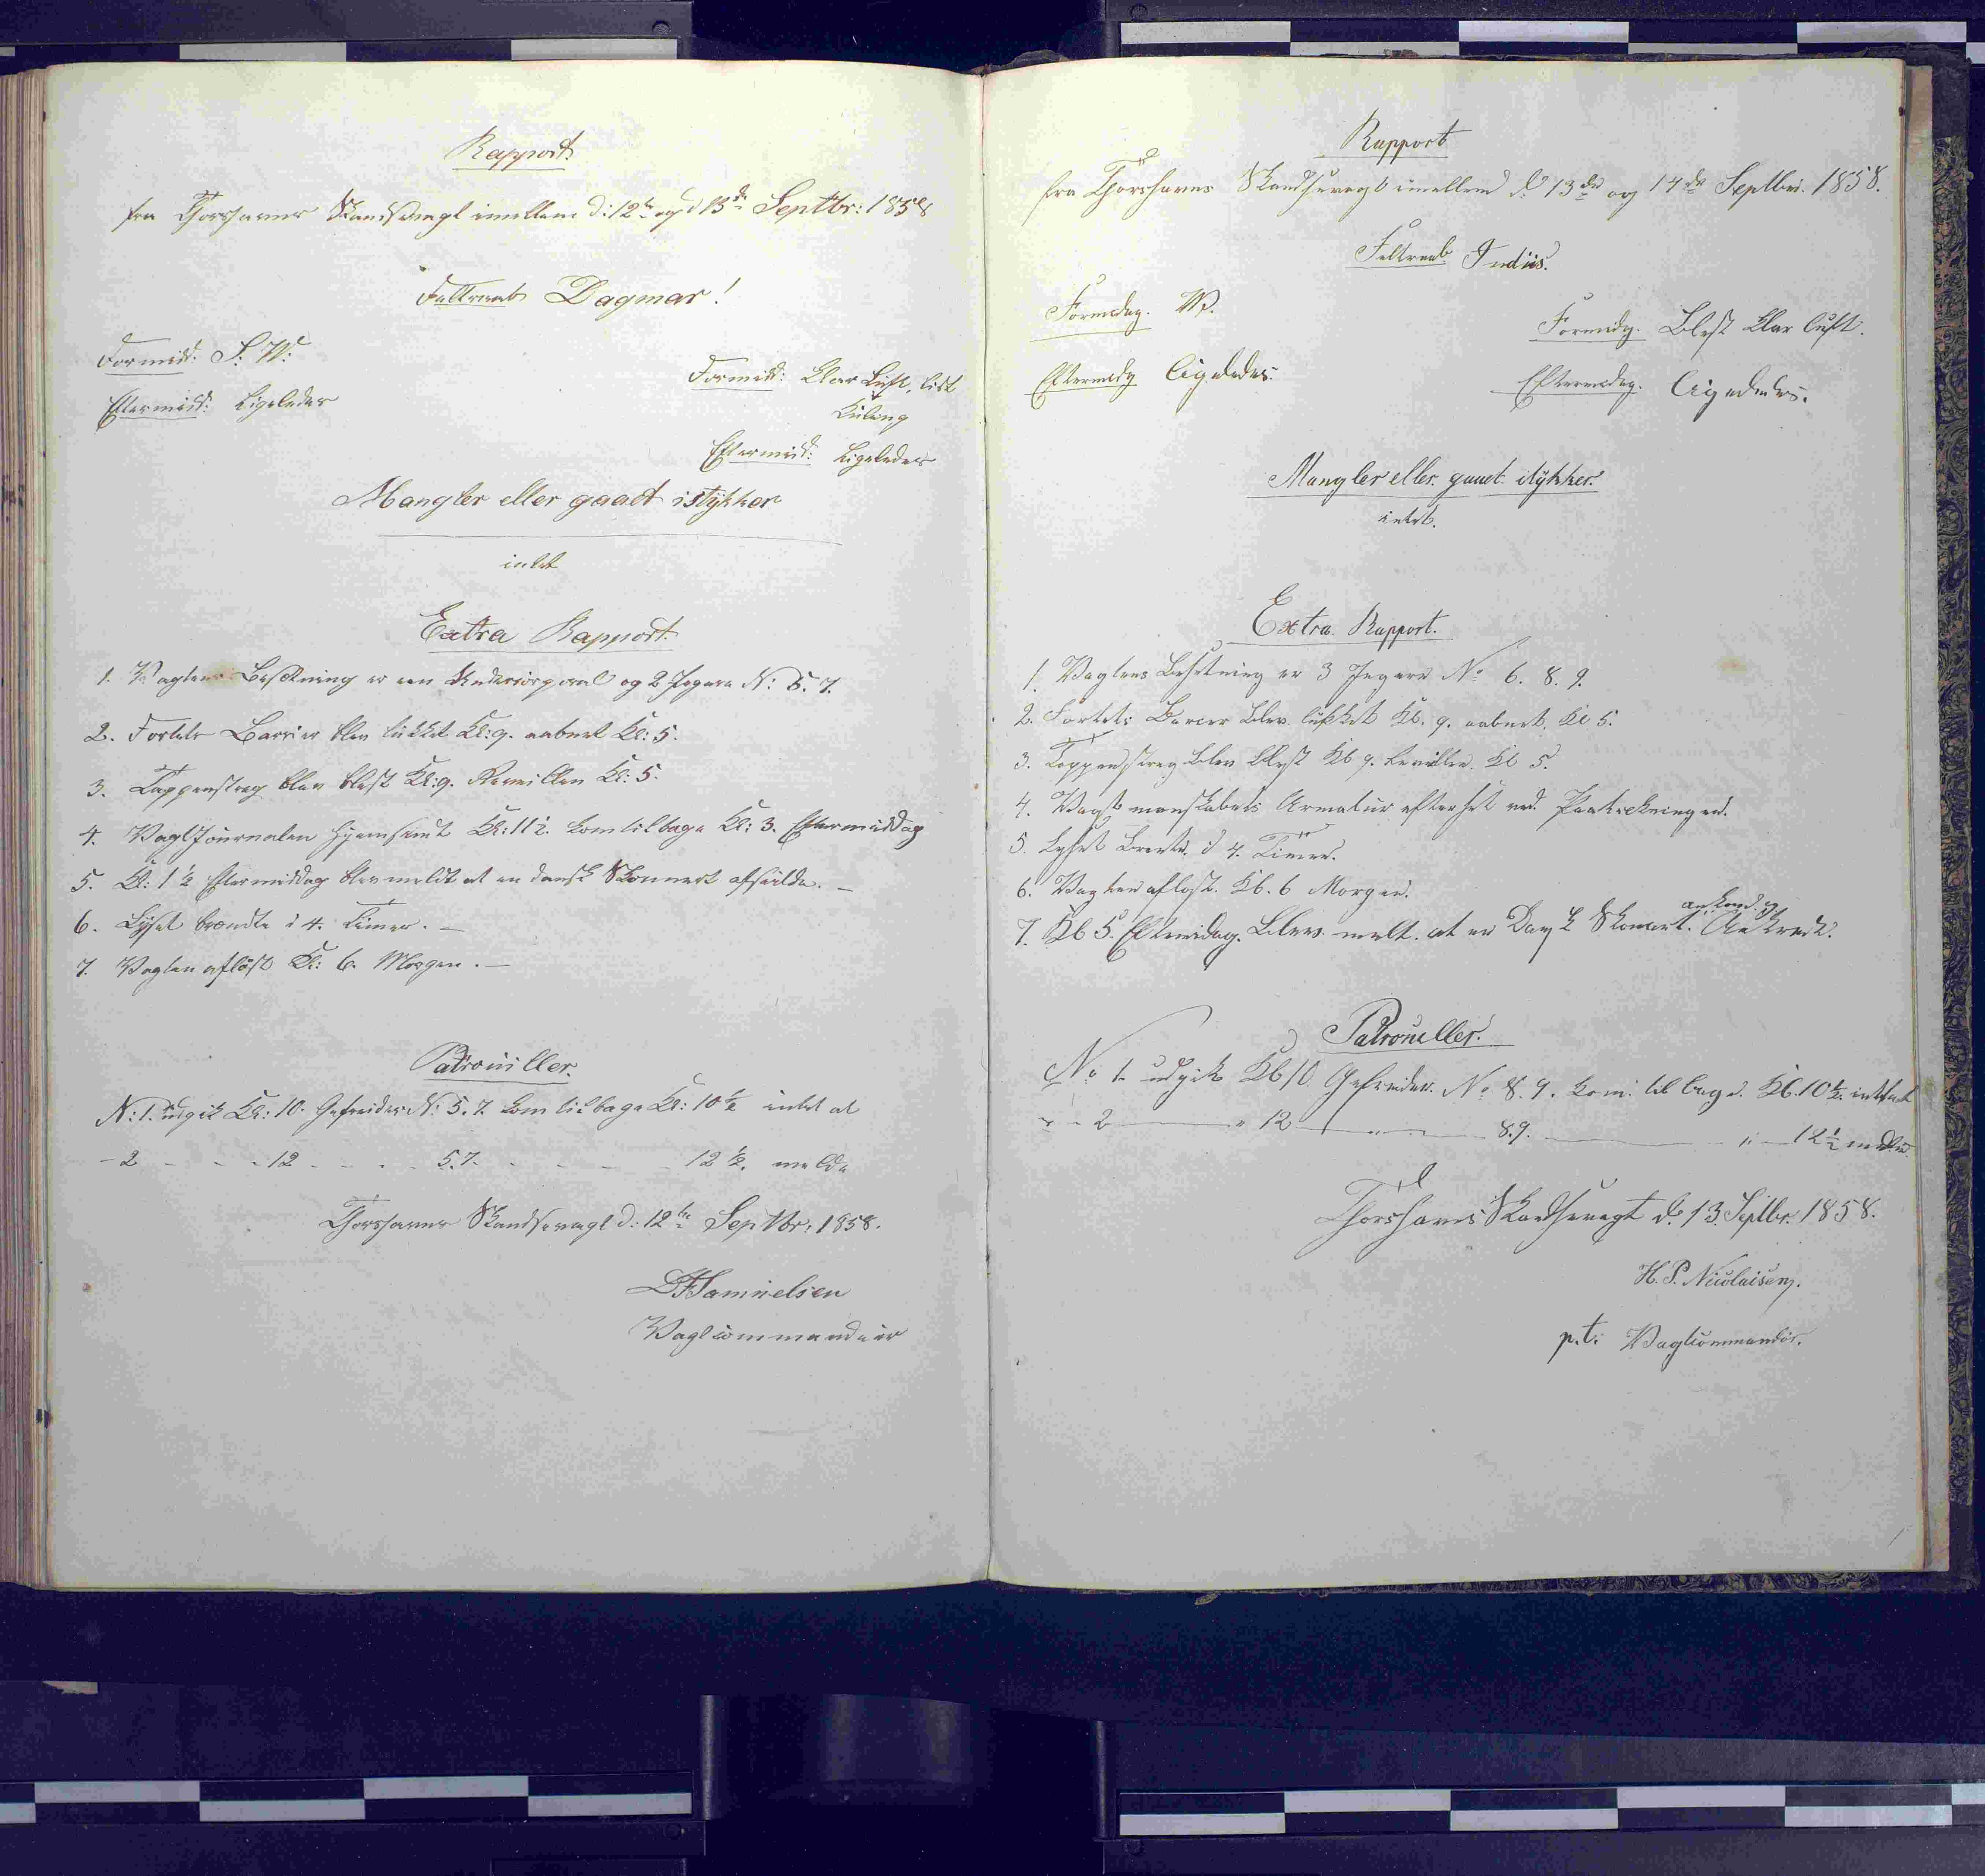 Rapport
fra Thorshavns Skandsevagt imellem d: 12te og d 13de Septbr: 1858
Feltraab Dagmar!
Formidd: S. W:
Eftermidd: Ligeledes
Formidd: klar Luft, lidt
Kuling
Eftermidd: Ligeledes
Mangler eller gaaet istykker
intet
Extra Rapport
1. Vagtens Besetning er een Underkorporal og 2 Jegere N: 5. 7.
2. Fortets Barrier blev lukket Kl: 9. aabnet Kl: 5.
3. Tappenstreg blev blest Kl: 9. Reveillen Kl: 5.
4. Vagtjournalen hjemsendt Kl: 11½. kom tilbage Kl: 3. Eftermiddag
5. Kl: 1½ Eftermiddag blev meldt at en dansk Skonnert afseilde. —
6. Lyset brændte i 4. Timer. —
7. Vagten aflöst Kl: 6. Morgen. —
Patrouiller.
N: 1. udgik Kl: 10. Gefreider N: 5. 7. kom tilbage Kl: 10½ intet at
- 2 - - - 12 - - - - 5. 7. - - - - - 12½. melde
Thorshavns Skandsevagt d: 12te Septbr: 1858.
Samuelsen
Vagtcommandeur
Rapport
fra Thorshavns Skandsevagt imellem d. 13de og 14de Septbr. 1858.
Feltraab Indiis.
Formidag. W.
Eftermidg Ligeledes.
Formidg. Blest klar luft.
Eftermidag. Ligeledes.
Mangler eller gaaet itykker
intet.
Extra Rapport.
1. Vagtens Besetning er 3 Jegere No 6. 8. 9.
2. Fortets Barier blev lukket Kl. 9. aabnet Kl 5.
3. Tappenstreg blev blest Kl 9. Revillen Kl 5.
4. Vagtmanskabets Armatur efterset ved Paatrekningen.
5. Lyset Brente i 4. Timer.
6. Vagten aflöst. Kl. 6 Morgen.
7. Kl 5. Eftermidag. blev melt. at en Dansk Skonnert.
Patrouiller.
No 1. udgik Kl 10. Gefreider. No 8. 9. kom tilbage. Kl. 10½ intet at
" - 2 — " 12 — " — 8. 9. — " — 12½ melde.
Thorshavns Skandsevagt d. 13. Septbr. 1858.
H. P. Nicolaisen.
p. t. Vagtcommandör.